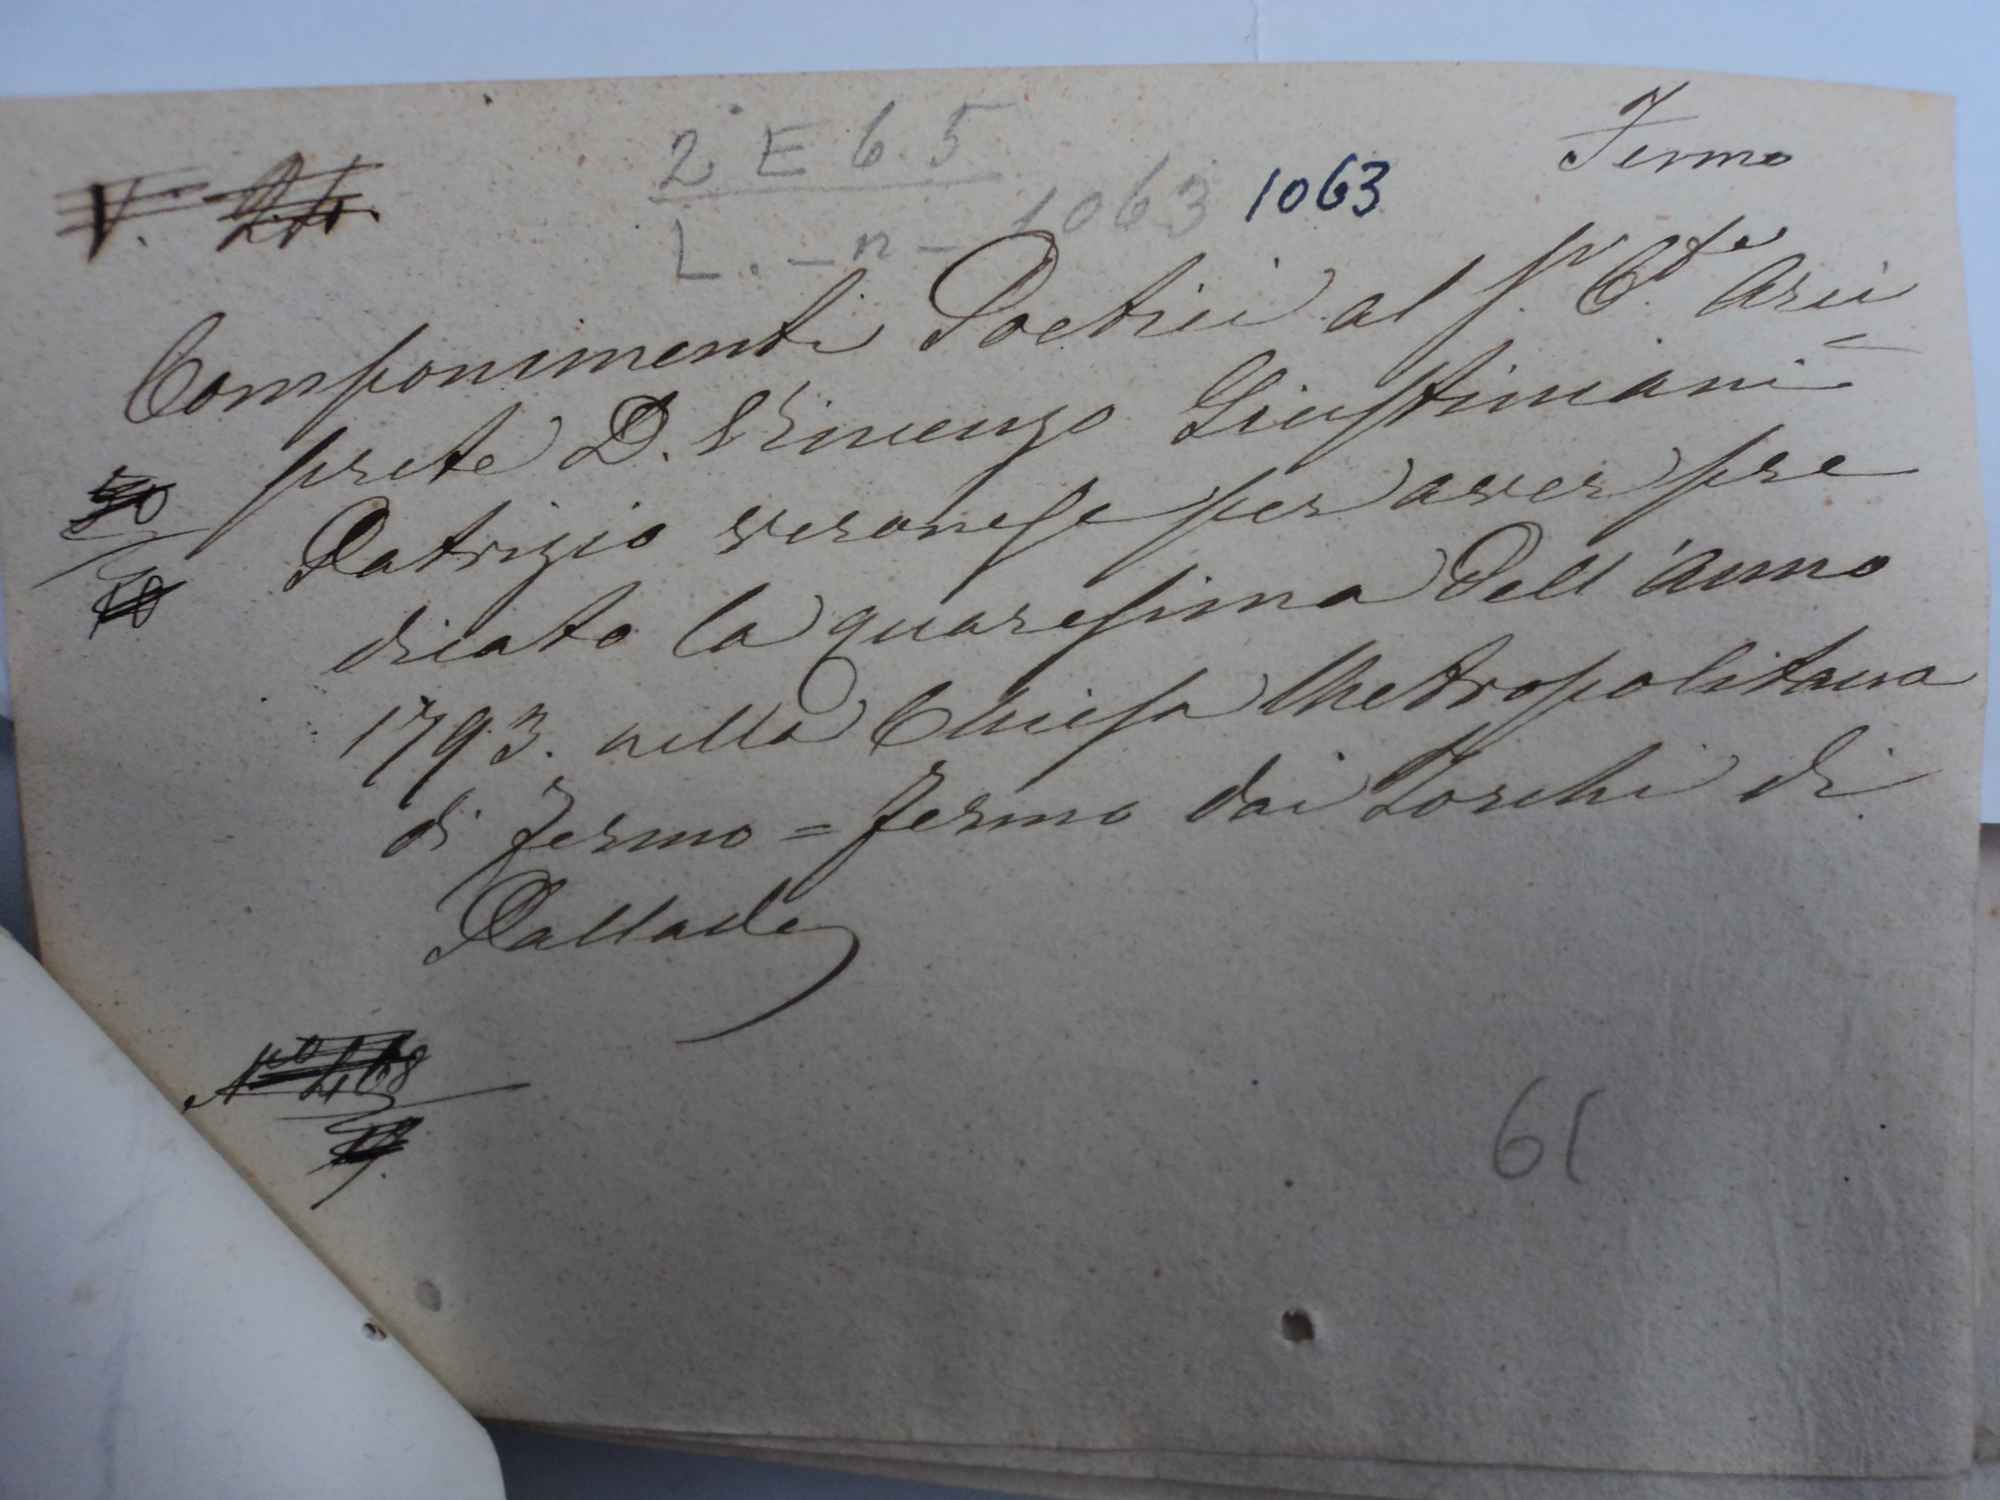 Fermo
2 E 6.5
L. - n - 1063 1063
Componimenti Poetici al Sr. Cte Arci=
prete D. Vincenzo Giustiniani
Patrizio veronese per aver pre
dicato la quaresima dell'anno
1793. nella Chiesa Metropolitana
di Fermo = Fermo dai Torchi di
Pallade
61